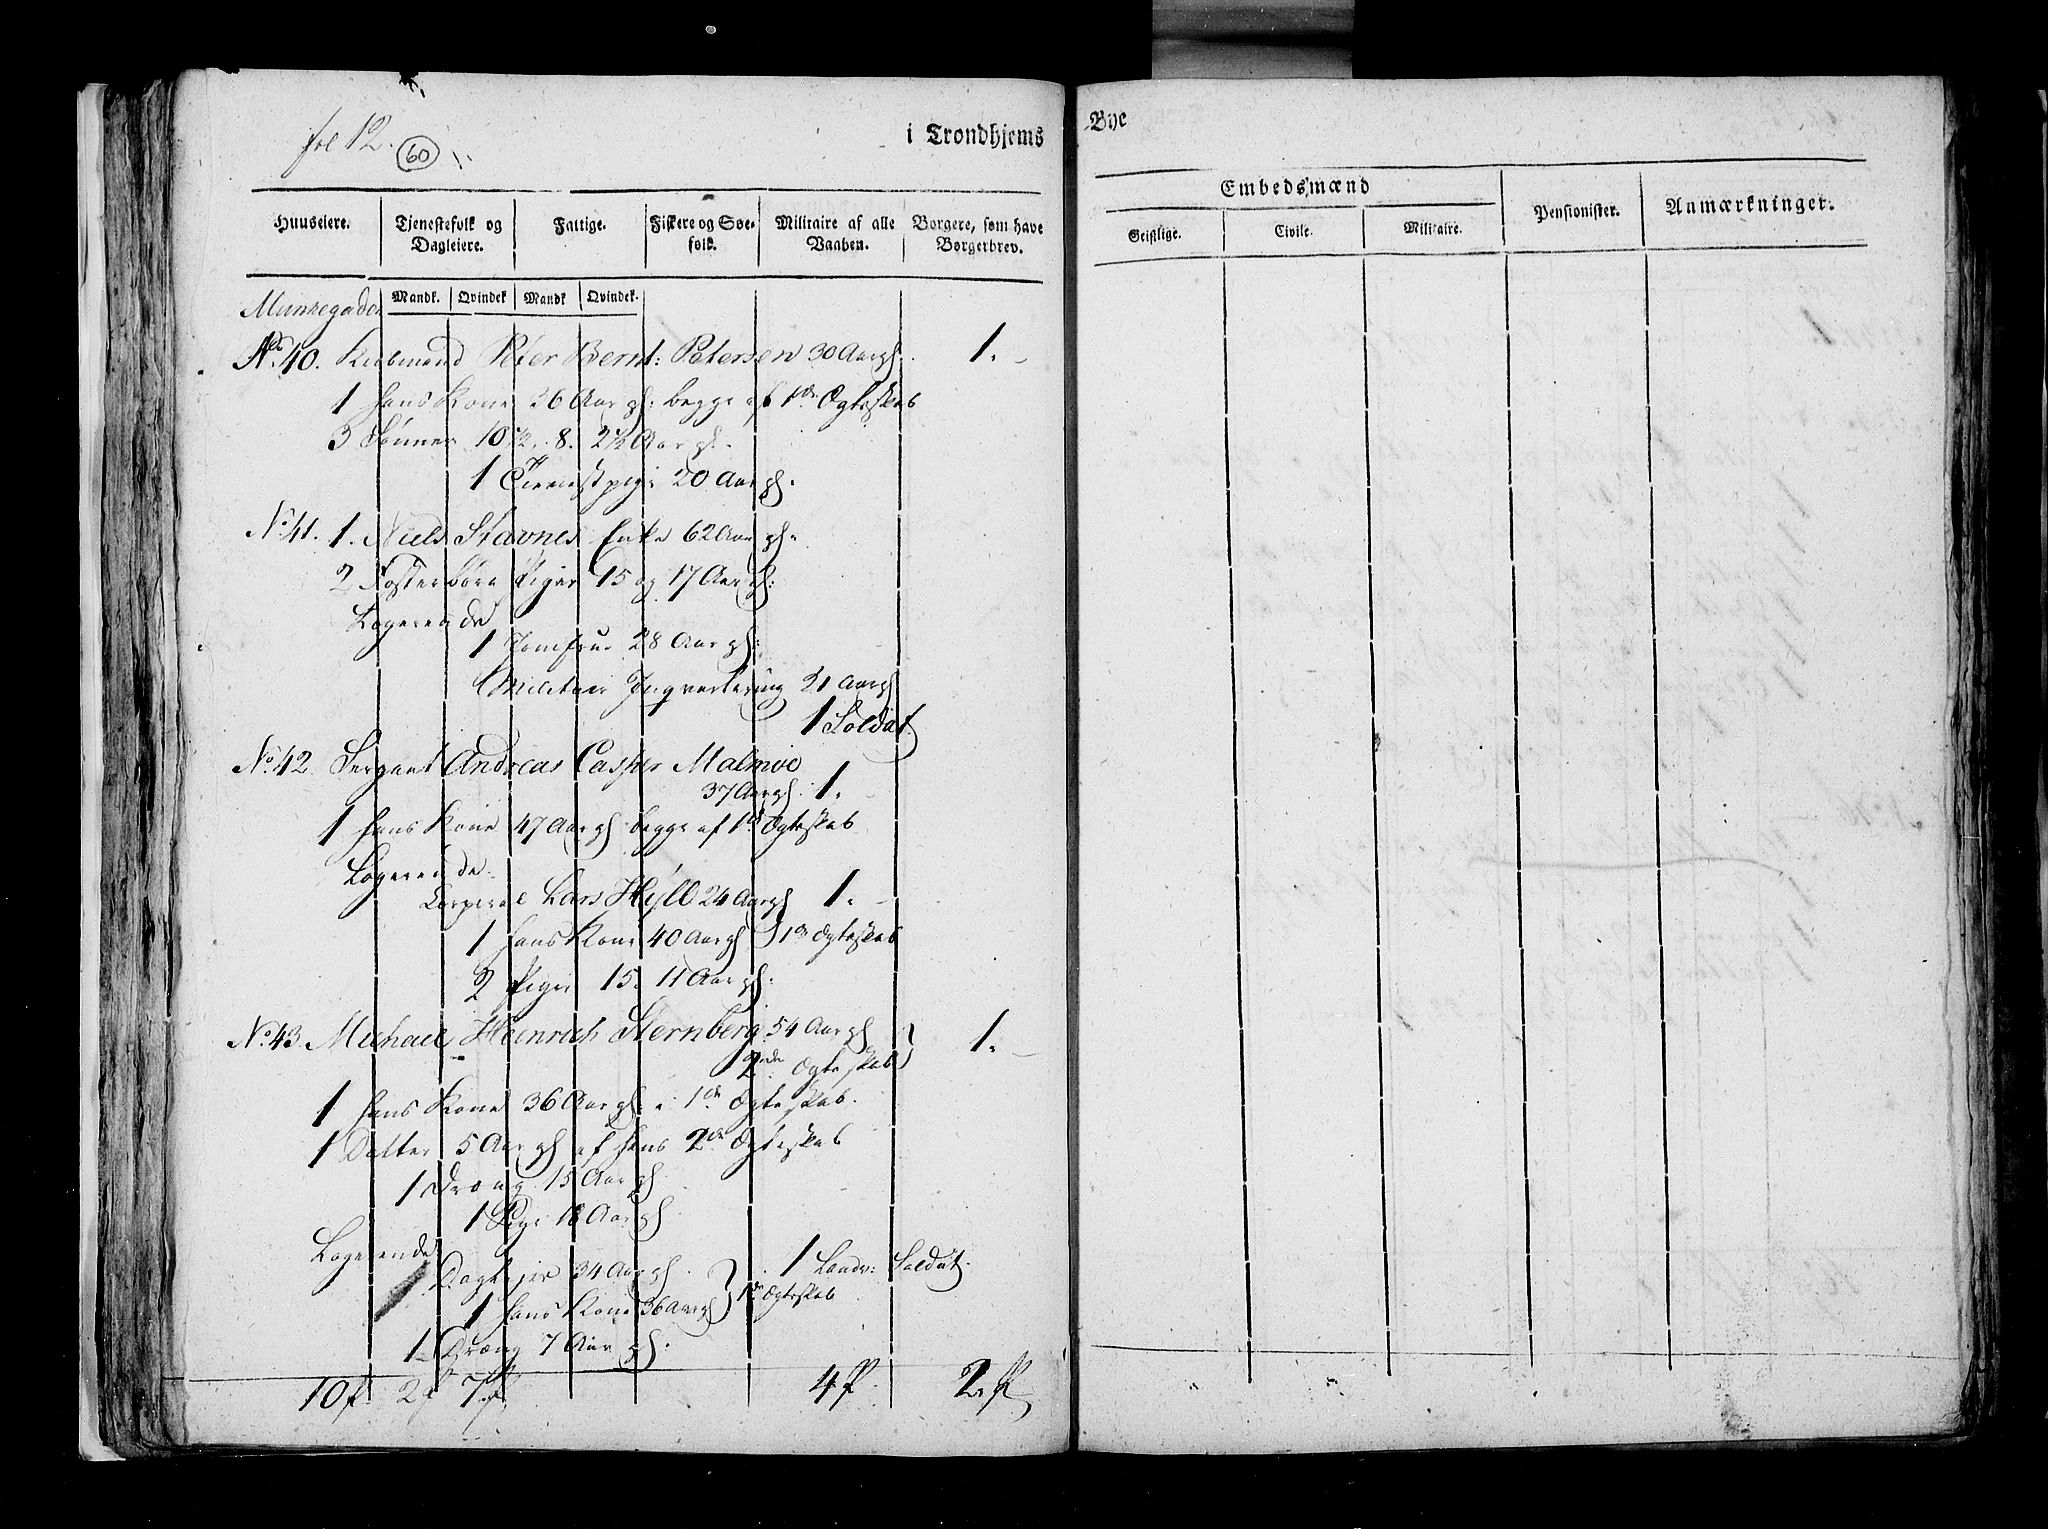 fol 12.
60
i Trondhjems
Bye
Embedsmænd
Huuseiere. Tjenestefolk og Dagleiere. Fattige. Fiskere og Søefolk. Militaire af alle Vaaben. Borgere, som have Borgerbrev.
Geistlige. Civile. Militaire. Pensionister. Anmærkninger.
Mandk. Qvindek Mandk Qvindek.
Munkegaden
No. 40. Kiøbmand Peter Bernt: Petersen 30 Aar gl. 1.
1 hans Kone 36 Aar gl: begge af 1de Ægteskab
3 Sønner 10 1/2. 8. 2 1/2 Aar gl.
1 Tienestpige 20 Aar gl.
No. 41. 1. Niels Stavnes Enke 62 Aar gl.
2 Fosterbørn Piger 15 og 17 Aar gl:
Logerende
1 Jomfrue 28 Aar gl:
Militair Inqvartering 21 Aar gl
1 Soldat
No. 42. Sergeant Andreas Casper Malmoe
37 Aar gl. 1.
1 hans Kone 47 Aar gl begge af 1de Ægteskab
Logerende
Corporal Lars Hyll 24 Aar gl 1.
1 hans Kone 40 Aar gl 1de Ægteskab
2 Piger 15. 11 Aar gl:
No. 43. Michael Heinrich Sternberg 54 Aar gl 1.
2de Ægteskab
1 hans Kone 36 Aar gl i 1de Ægteskab.
1 Datter 5 Aar gl af hans 2de Ægteskab
1 Dreng 15 Aar gl.
1 Pige 18 Aar gl.
Logerende
Dagleier 34 Aar gl. 1 Landv: Soldat.
1 hans Kone 36 Aar gl 1de Ægteskab
1 Dræng 7 Aar gl.
10 P 2 P 7 P. 4 P. 2. P